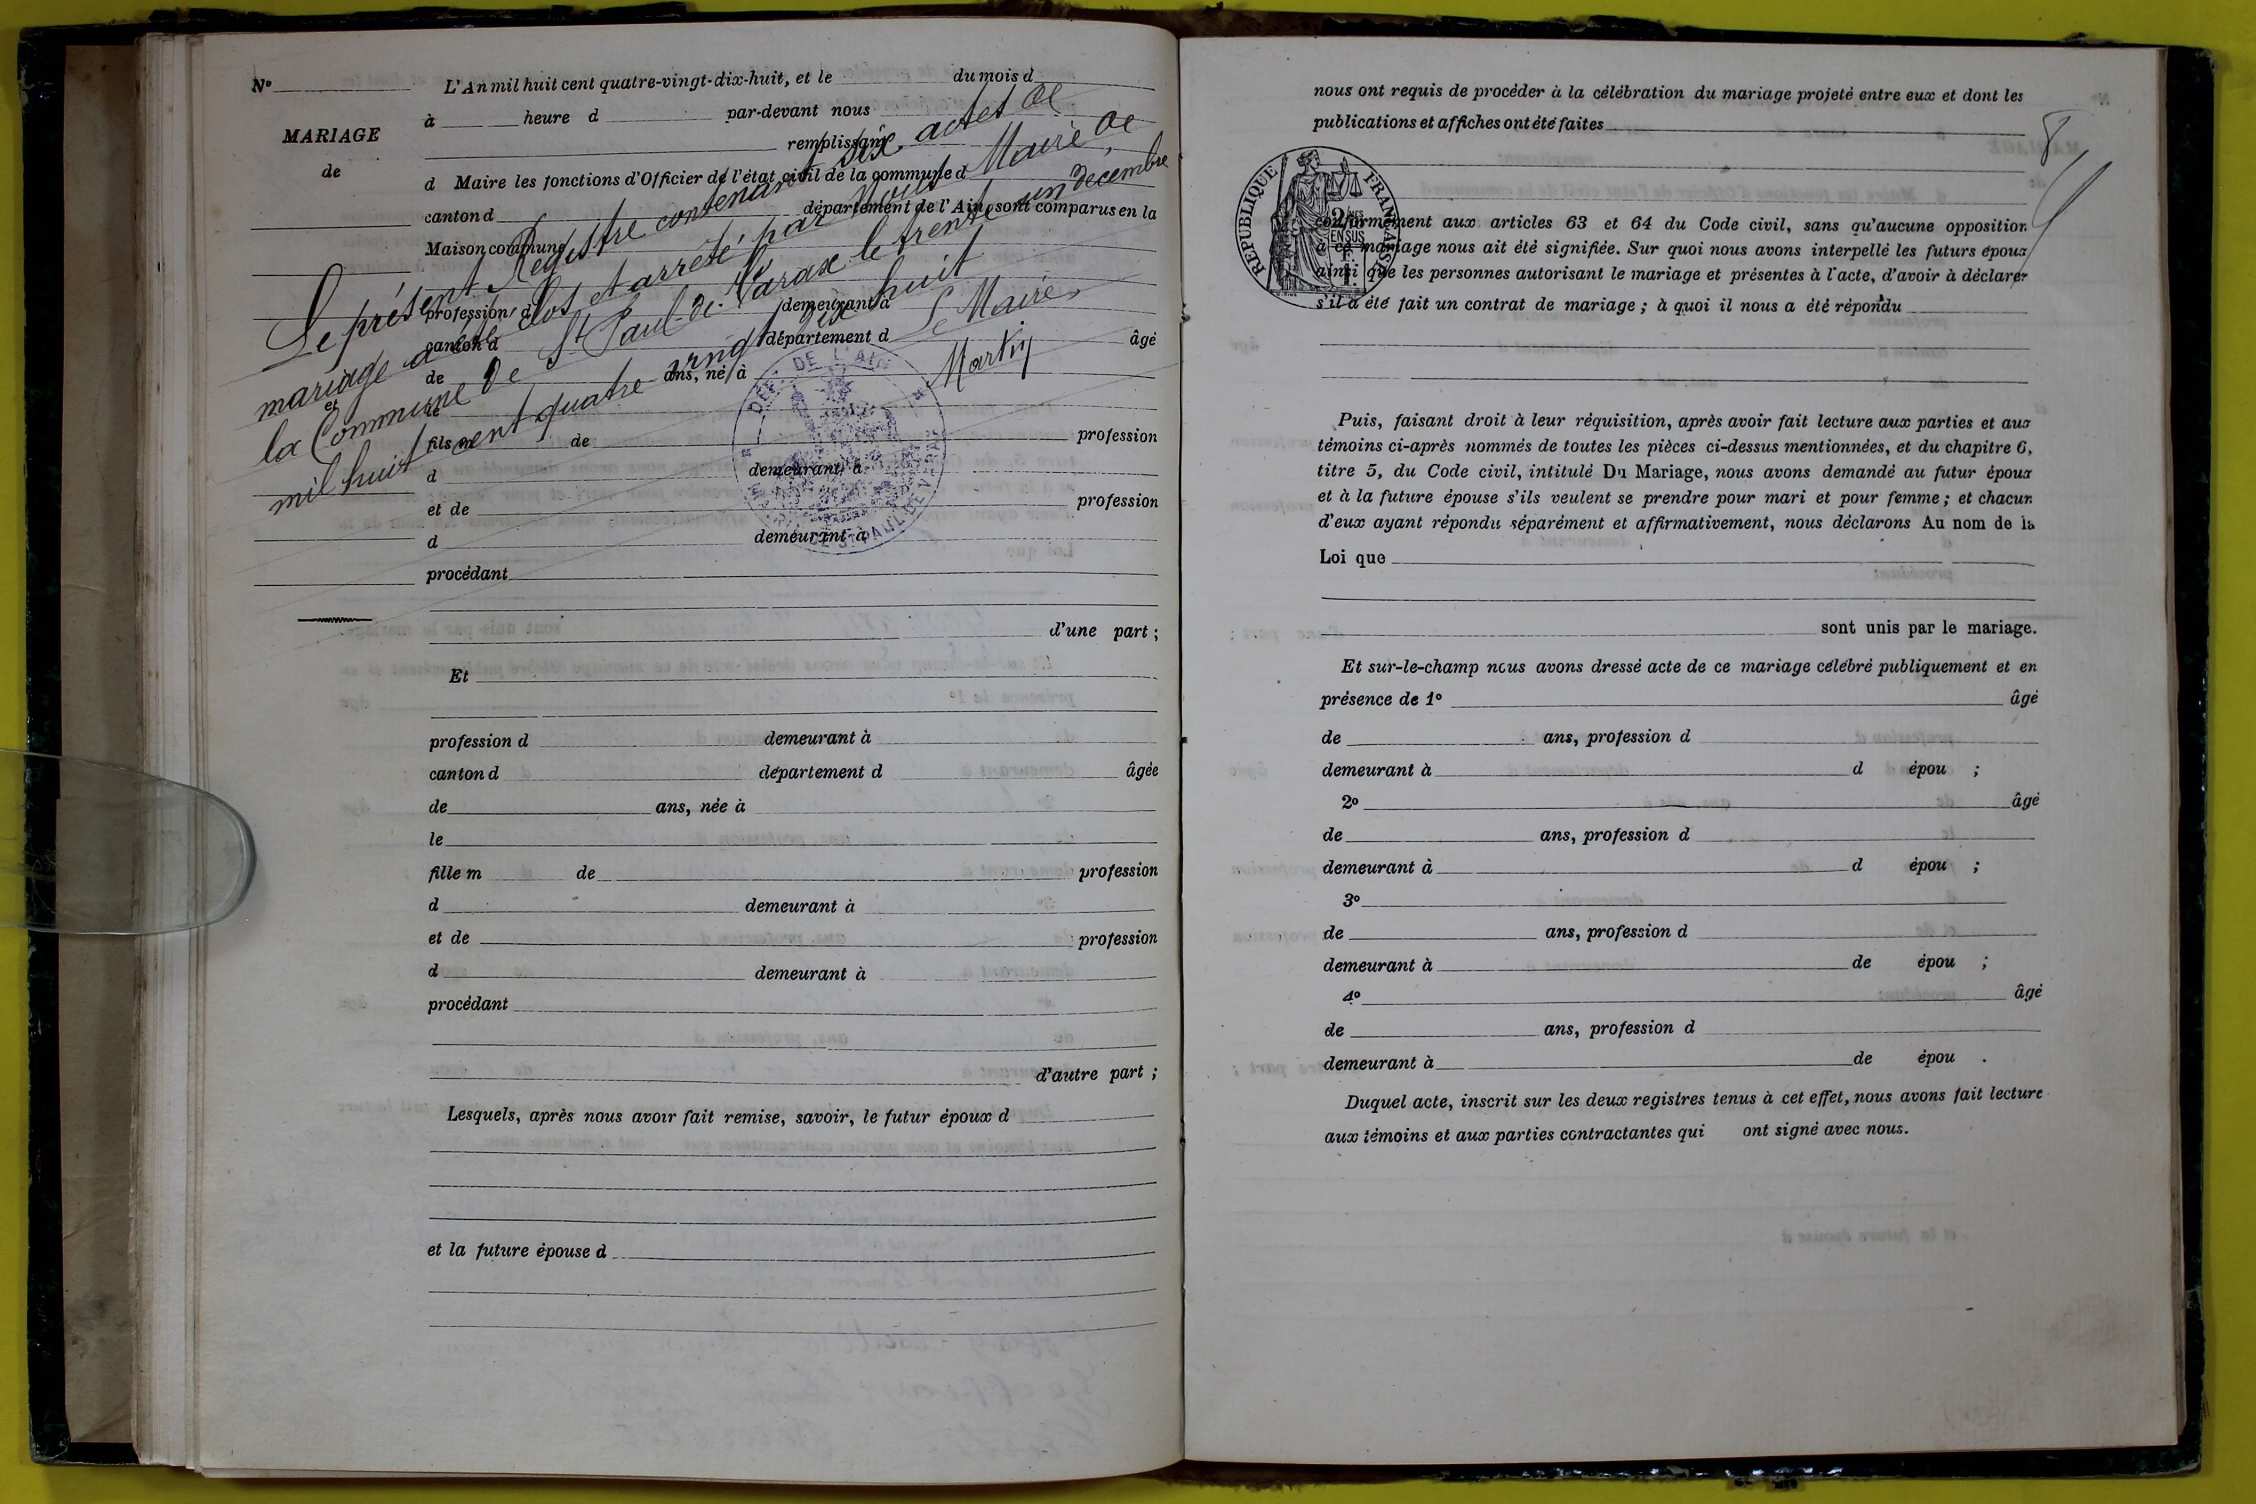 N°
MARIAGE
de
et
L'An mil huit cent quatre-vingt-dix-huit, et le du mois d
à heure d par-devant nous
remplissant
d Maire les fonctions d'Officier de l'état civil de la commune d
canton d département de l'Ain, sont comparus en la
Maison commune
profession d demeurant à
canton d département d âgé
de ans, né à
le
fils m de profession
d demeurant à
et de profession
d demeurant à
procédant
d'une part ;
Et
profession d demeurant à
canton d département d âgée
de ans, née à
le
fille m de profession
d demeurant à
et de profession
d demeurant à
procédant
d'autre part ;
Lesquels, après nous avoir fait remise, savoir, le futur époux d
et la future épouse d
Le présent Registre contenant six actes de
mariage a été clos et arrêté par nous Maire de
la Commune de St Paul-de-Varax le trente un décembre
mil huit cent quatre vingt dix huit
Le Maire,
Martin
DÉP. DE L'AIN
DE ST PAUL DE VARAX
8
nous ont requis de procéder à la célébration du mariage projeté entre eux et dont les
publications et affiches ont été faites
RÉPUBLIQUE FRANÇAISE
2/10ES
EN SUS
conformément aux articles 63 et 64 du Code civil, sans qu'aucune opposition
à ce mariage nous ait été signifiée. Sur quoi nous avons interpellé les futurs époux
ainsi que les personnes autorisant le mariage et présentes à l'acte, d'avoir à déclarer
s'il a été fait un contrat de mariage ; à quoi il nous a été répondu
Puis, faisant droit à leur réquisition, après avoir fait lecture aux parties et aux
témoins ci-après nommés de toutes les pièces ci-dessus mentionnées, et du chapitre 6,
titre 5, du Code civil, intitulé Du Mariage, nous avons demandé au futur époux
et à la future épouse s'ils veulent se prendre pour mari et pour femme ; et chacun
d'eux ayant répondu séparément et affirmativement, nous déclarons Au nom de la
Loi que
sont unis par le mariage.
Et sur-le-champ nous avons dressé acte de ce mariage célébré publiquement et en
présence de 1° âgé
de ans, profession d
demeurant à d épou ;
2° âgé
de ans, profession d
demeurant à d épou ;
3°
de ans, profession d
demeurant à de épou ;
4° âgé
de ans, profession d
demeurant à de épou .
Duquel acte, inscrit sur les deux registres tenus à cet effet, nous avons fait lecture
aux témoins et aux parties contractantes qui ont signé avec nous.